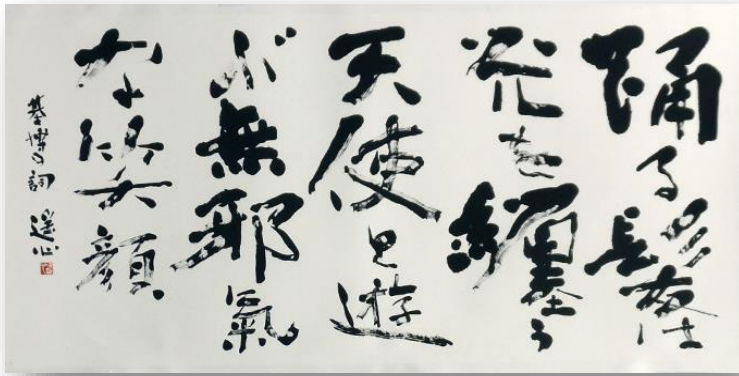 踊る髪は
光を纏う
天使と遊
ぶ無邪氣
な笑顔
基博の詞